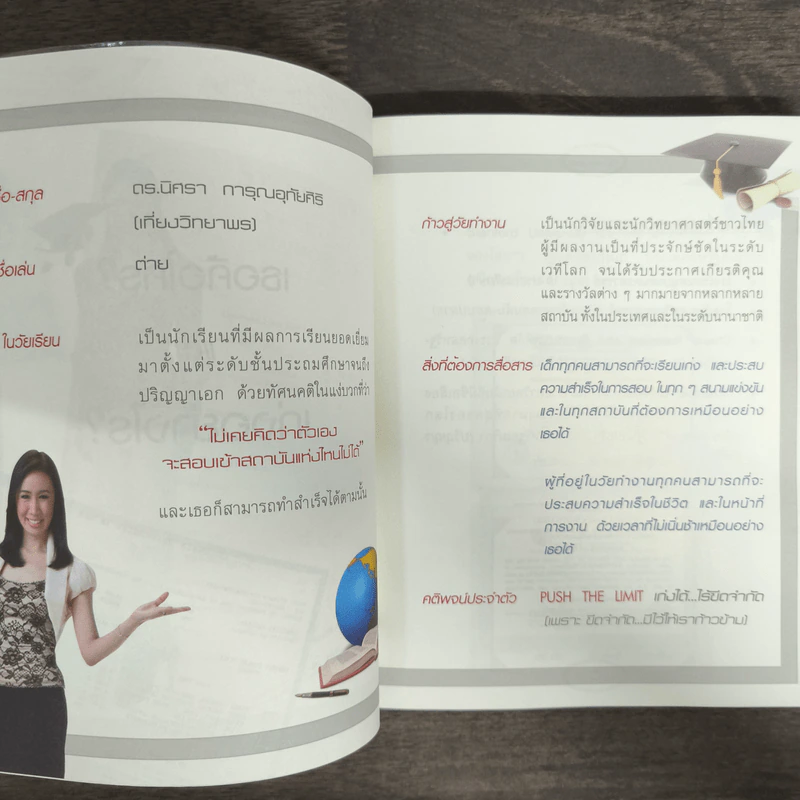 อ-สกุล ดร.นิศรา การุณอุทัยศิริ
(เที่ยงวิทยาพร)
ชื่อเล่น ต่าย
ในวัยเรียน เป็นนักเรียนที่มีผลการเรียนยอดเยี่ยม
มาตั้งแต่ระดับชั้นประถมศึกษาจนถึง
ปริญญาเอก ด้วยทัศนคติในแง่บวกที่ว่า
“ไม่เคยคิดว่าตัวเอง
จะสอบเข้าสถาบันแห่งไหนไม่ได้”
และเธอก็สามารถทำสำเร็จได้ตามนั้น
ก้าวสู่วัยทำงาน เป็นนักวิจัยและนักวิทยาศาสตร์ชาวไทย
ผู้มีผลงานเป็นที่ประจักษ์ชัดในระดับ
เวทีโลก จนได้รับประกาศเกียรติคุณ
และรางวัลต่าง ๆ มากมายจากหลากหลาย
สถาบัน ทั้งในประเทศและในระดับนานาชาติ
สิ่งที่ต้องการสื่อสาร เด็กทุกคนสามารถที่จะเรียนเก่ง และประสบ
ความสำเร็จในการสอบ ในทุก ๆ สนามแข่งขัน
และในทุกสถาบันที่ต้องการเหมือนอย่าง
เธอได้
ผู้ที่อยู่ในวัยทำงานทุกคนสามารถที่จะ
ประสบความสำเร็จในชีวิต และในหน้าที่
การงาน ด้วยเวลาที่ไม่เนิ่นช้าเหมือนอย่าง
เธอได้
คติพจน์ประจำตัว PUSH THE LIMIT เก่งได้...ไร้ขีดจำกัด
(เพราะ ขีดจำกัด...มีไว้ให้เราก้าวข้าม)